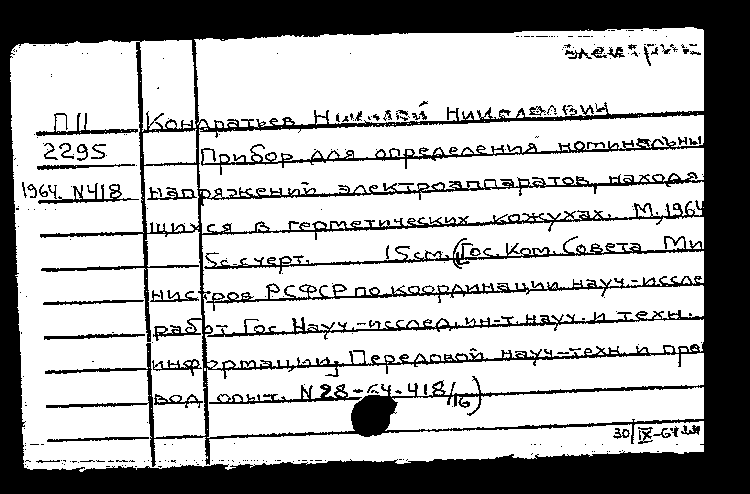 электрик
П11 Кондратьев, Николай Николаевич
2295 Прибор для определения номинальны
1964. N418 напряжений электроаппаратов, находя
щихся в герметических кожухах. М, 1964
5с. с черт. 15см. (Гос. Ком. Совета Ми
нистров РСФСР по координации науч.-иссле
работ Гос. Науч.-исслед. ин-т. науч. и техн.
информации, Передовой науч-техн. и про
вод опыт. N28-64-418/16)
30/IX-64